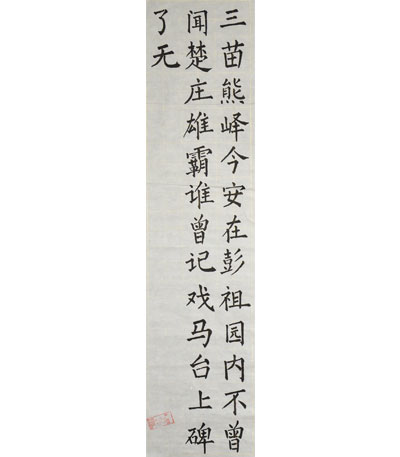 三苗熊峄今安在彭祖园内不曾
闻楚庄雄霸谁曾记戏马台上碑
了无